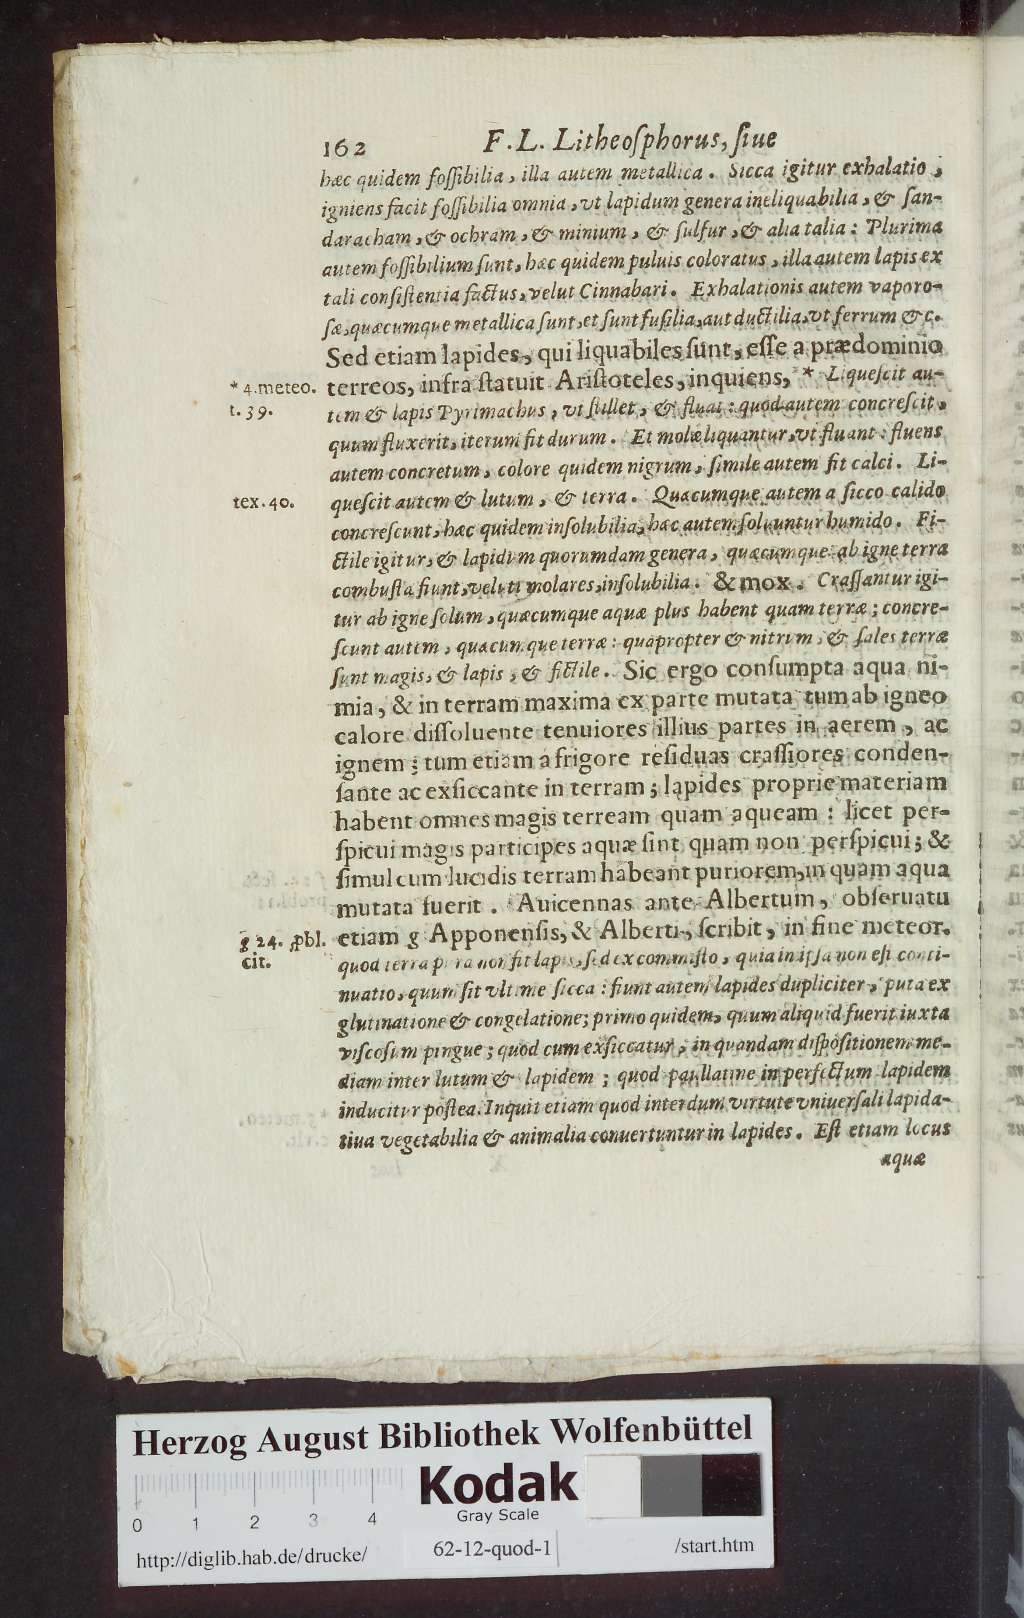 162 F. L. Litheosphorus, siue
hæc quidem fossibilia, illa autem metallica. Sicca igitur exhalatio,
igniens facit fossibilia omnia, vt lapidum genera ineliquabilia, & san-
daracham, & ochram, & minium, & sulfur, & alia talia: Plurima
autem fossibilium sunt, hæc quidem puluis coloratus, illa autem lapis ex
tali consistentia factus, velut Cinnabari. Exhalationis autem vaporo-
sæ, quæcumque metallica sunt, et sunt fusilia, aut ductilia, vt ferrum &c.
Sed etiam lapides, qui liquabiles sunt, esse a prædominio
* 4. meteo. terreos, infra statuit Aristoteles, inquiens, * Liquescit au-
t. 39. tem & lapis Pyrimachus, vt stillet, & fluat: quod autem concrescit,
quum fluxerit, iterum fit durum. Et molæ liquantur, vt fluant: fluens
autem concretum, colore quidem nigrum, simile autem fit calci. Li-
tex. 40. quescit autem & lutum, & terra. Quæcumque autem a sicco calido
concrescunt, hæc quidem insolubilia, hæc autem soluuntur humido. Fi-
ctile igitur, & lapidum quorumdam genera, quæcumque ab igne terra
combusta fiunt, veluti molares, insolubilia. & mox. Crassantur igi-
tur ab igne solum, quæcumque aquæ plus habent quam terræ; concre-
scunt autem, quæcunque terræ: quapropter & nitrum, & sales terræ
sunt magis, & lapis, & fictile. Sic ergo consumpta aqua ni-
mia, & in terram maxima ex parte mutata tum ab igneo
calore dissoluente tenuiores illius partes in aerem, ac
ignem; tum etiam a frigore residuas crassiores conden-
sante ac exsiccante in terram; lapides proprie materiam
habent omnes magis terream quam aqueam: licet per-
spicui magis participes aquæ sint quam non perspicui; &
simul cum lucidis terram habeant puriorem, in quam aqua
mutata fuerit. Auicennas ante Albertum, obseruatu
g 24. ꝓbl. etiam g Apponensis, & Alberti, scribit, in fine meteor.
cit. quod terra pura non fit lapis, sed ex commisto, quia in ipsa non est conti-
nuatio, quum sit vltime sicca: fiunt autem lapides dupliciter, puta ex
glutinatione & congelatione; primo quidem, quum aliquid fuerit iuxta
viscosum pingue; quod cum exsiccatur, in quandam dispositionem me-
diam inter lutum & lapidem; quod paullatine in perfectum lapidem
inducitur postea. Inquit etiam quod interdum virtute vniuersali lapida-
tiua vegetabilia & animalia conuertuntur in lapides. Est etiam locus
aquæ
Herzog August Bibliothek Wolfenbüttel
Kodak
Gray Scale
0 1 2 3 4
http://diglib.hab.de/drucke/ 62-12-quod-1 /start.htm